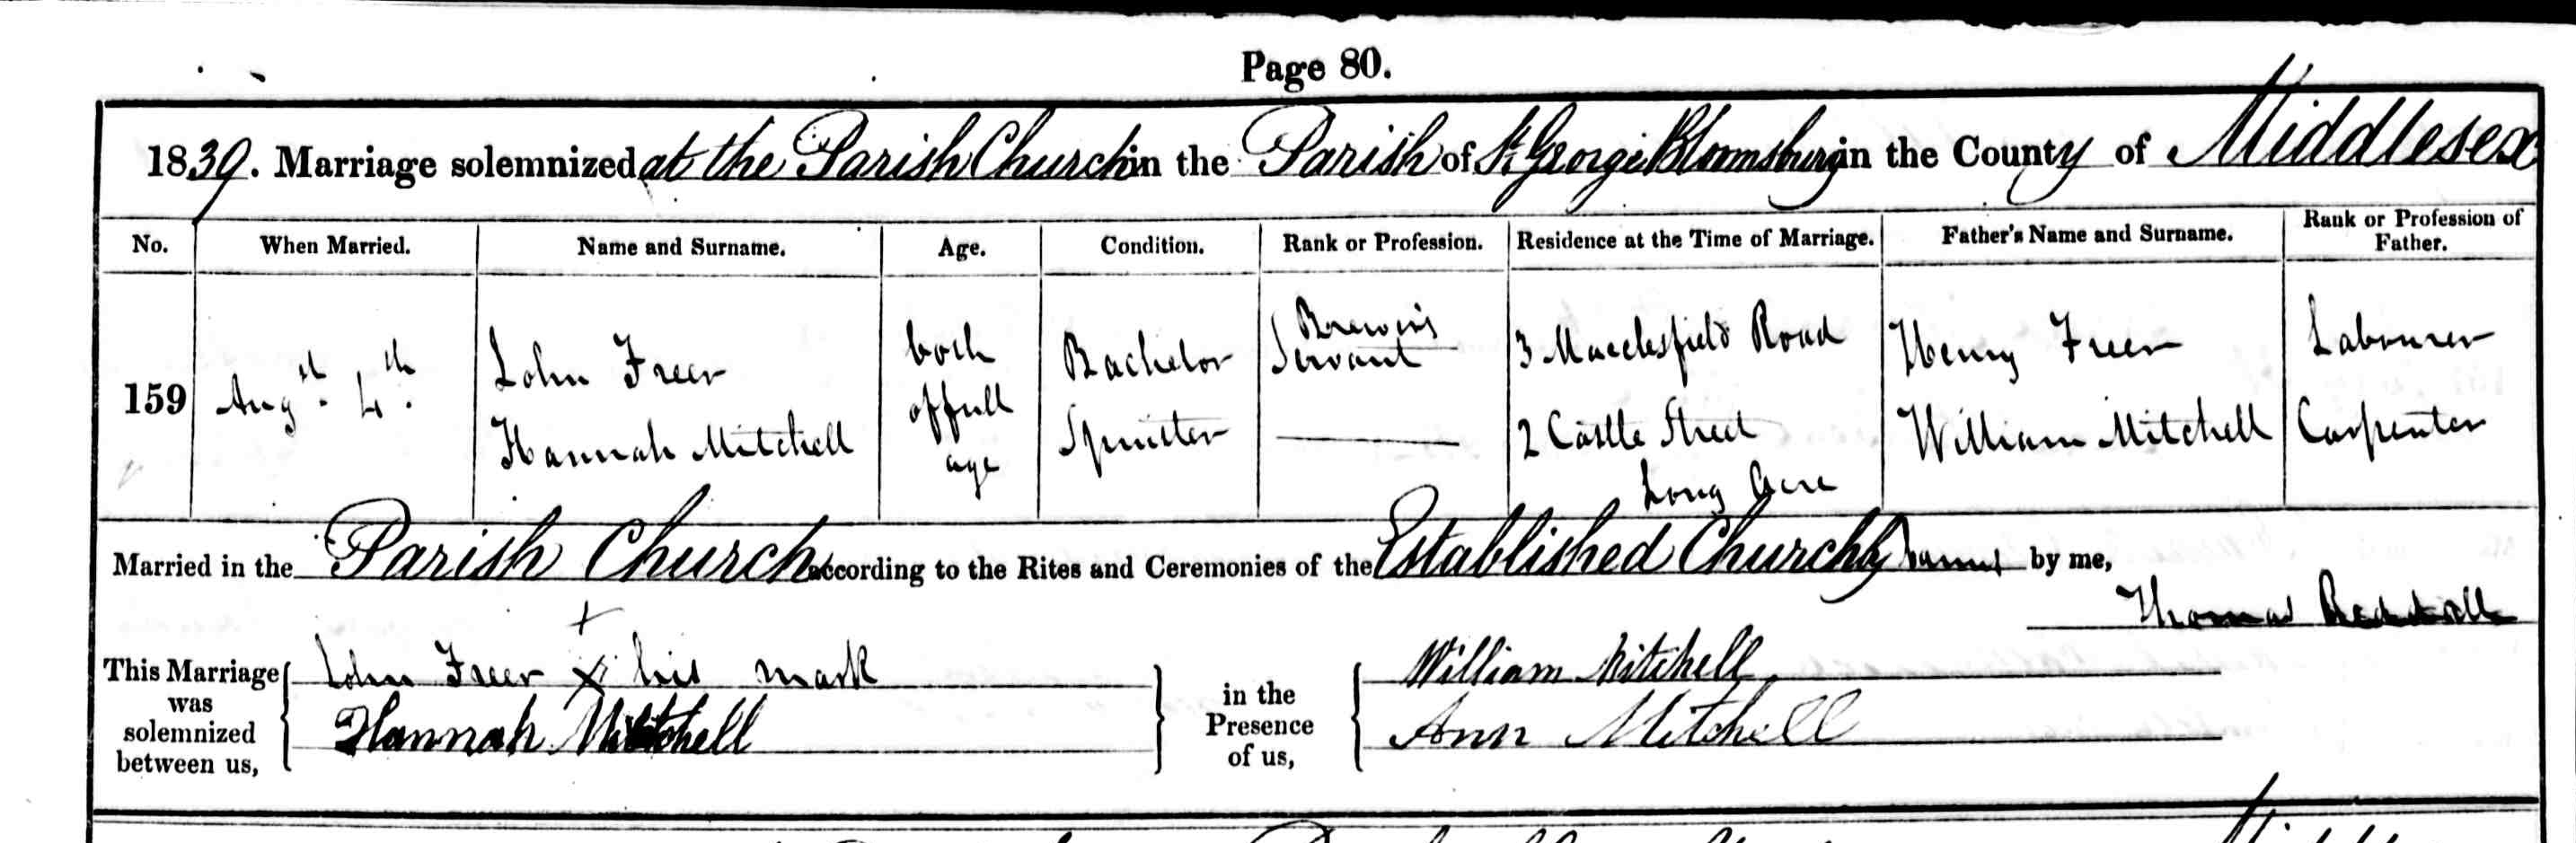 Page 80.
1839. Marriage solemnized at the Parish Church in the Parish of St. George Bloomsbury in the County of Middlesex
No. When Married. Name and Surname. Age. Condition. Rank or Profession. Residence at the Time of Marriage. Father's Name and Surname. Rank or Profession of Father.
159 Augst. 4th. John Freer both of full age Bachelor Brewer's Servant 3 Macclesfield Road Henry Freer Labourer
Hannah Mitchell Spinster 2 Castle Street Long Acre William Mitchell Carpenter
Married in the Parish Church according to the Rites and Ceremonies of the Established Church by banns by me,
Thomas
This Marriage was solemnized between us, John Freer x his mark
Hannah Mitchell
in the Presence of us, William Mitchell
Ann Mitchell